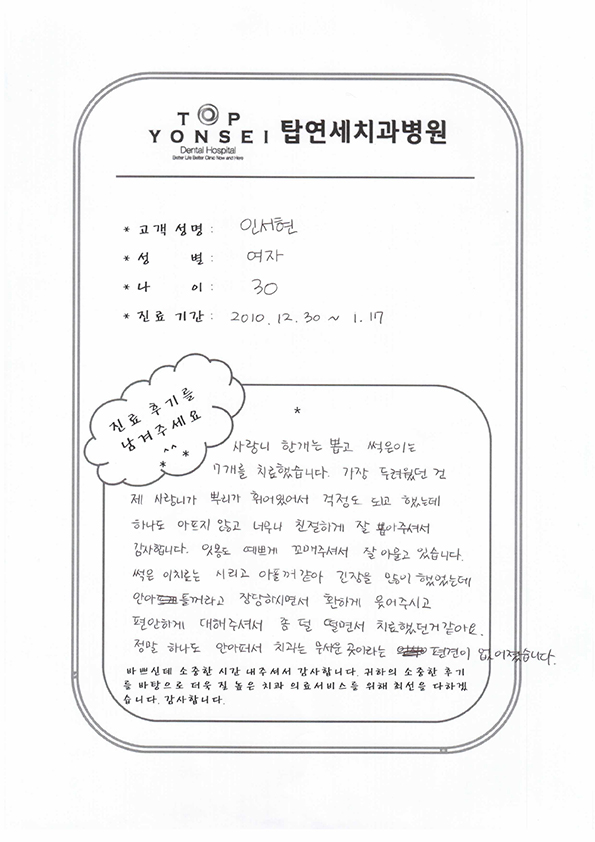 TOP
YONSEI 탑연세치과병원
Dental Hospital
Better Life Better Clinic Now and Here
* 고객 성명 : 인서현
* 성 별 : 여자
* 나 이 : 30
* 진료 기간 : 2010. 12. 30 ~ 1. 17
진료 후기를
남겨주세요
^^
* *
*
사랑니 한개는 뽑고 썩은이는
7개를 치료했습니다. 가장 두려웠던 건
제 사랑니가 뿌리가 휘어있어서 걱정도 되고 했는데
하나도 아프지 않고 너무나 친절하게 잘 뽑아주셔서
감사합니다. 잇몸도 예쁘게 꼬매주셔서 잘 아물고 있습니다.
썩은 이치료는 시리고 아플꺼 같아 긴장을 많이 했었는데
안아플꺼라고 장담하시면서 환하게 웃어주시고
편안하게 대해주셔서 좀 덜 떨면서 치료했던거같아요.
정말 하나도 안아퍼서 치과는 무서운 곳이라는 편견이 없어졌습니다.
바쁘신데 소중한 시간 내주셔서 감사합니다. 귀하의 소중한 후기
를 바탕으로 더욱 질 높은 치과 의료서비스를 위해 최선을 다하겠
습니다. 감사합니다.